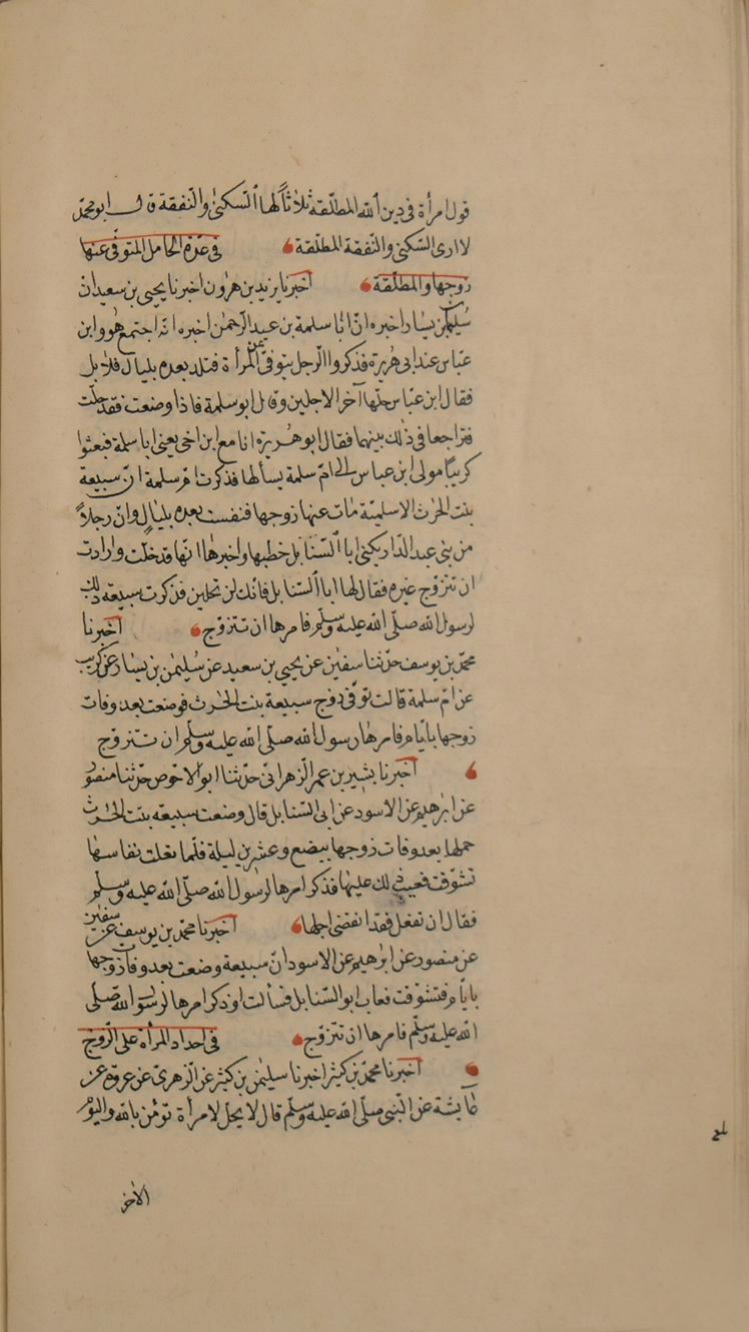 قول امرأة في دين الله المطلّقة ثلاثاً لها السّكنى والنّفقة قال ابو محمّد
لا ارى السّكنى والنّفقة المطلّقة في عدّة الحامل المتوفّى عنها
زوجها والمطلّقة اخبرنا يزيد بن هرون اخبرنا يحيى بن سعيد انّ
سُليمٰن بن يسار اخبره انّ ابا سلمة بن عبد الرّحمن اخبره انّه اجتمع هو وابن
عبّاس عند ابى هريرة فذكروا الرّجل يتوفّى عن المرأة فتلد بعده بليال قلايل
فقال ابن عبّاس حلّها آخر الاجلين وقال ابو سلمة فاذا وضعت فقد حلّت
فتراجعا في ذلك بينهما فقال ابو هريرة انا مع ابن اخى يعنى ابا سلمة فبعثوا
كريبًا مولى ابن عباس الى امّ سلمة يسألها فذكرت امّ سلمة انّ سبيعة
بنت الحٰرث الاسلميّة مات عنها زوجها فنفست بعده بليالٍ وانّ رجلاً
من بنى عبد الدّار يكنى ابا السّنابل خطبها واخبرها انّها قد حلّت وارادت
ان تتزوّج غيره فقال لها ابا السّنابل فانّك لن تحلين فذكرت سبيعه ذلك
لرسول الله صلّى الله عليه وسلّم فامرها ان تتزوّج اخبرنا
محمّد بن يوسف حدّثنا سفيٰن عن يحيى بن سعيد عن سُليمٰن بن يسار عن كريب
عن امّ سلمة قالت توفّى زوج سبيعة بنت الحٰرث فوضعت بعد وفات
زوجها بايّام فامرها رسول الله صلّى الله عليه وسلّم ان تتزوّج
اخبرنا بشير بن عمر الزّهرانى حدّثنا ابو الاحوص حدّثنا منصور
عن ابرهيم عن الاسود عن ابى السّنابل قال وضعت سبيعه بنت الحٰرث
حملها بعد وفات زوجها ببضع وعشرين ليلة فلمّا تعلت نفاسها
تشوّفت فعيب ذلك عليها فذكر امرها لرسول الله صلّى الله عليه وسلّم
فقال ان تفعل فقد انقضى اجلها اخبرنا محمّد بن يوسف عن سفيٰن
عن منصور عن ابرهيم عن الاسود انّ سبيعة وضعت بعد وفات زوجها
بايّام فتشوّفت فعاب ابو السّنابل فسألت او ذكر امرها لرسول الله صلّى
الله عليه وسلّم فامرها ان تتزوّج في احداد المرأة على الزّوج
اخبرنا محمّد بن كثير اخبرنا سليمٰن بن كثير عن الزهرى عن عروة عن
عايشة عن النّبى صلّى الله عليه وسلّم قال لا يحل لامرأة تؤمن بالله واليوم
الآخر